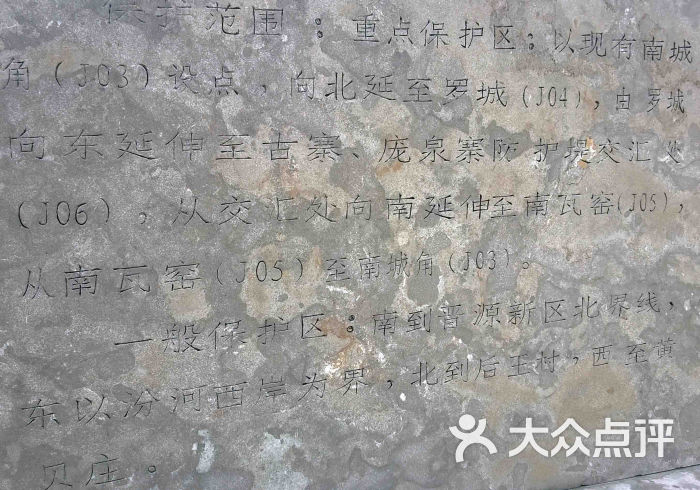 保护范围：重点保护区：以现有南城
角（J03）设点，向北延至罗城（J04），由罗城
向东延伸至古寨、庞泉寨防护堤交汇处
（J06），从交汇处向南延伸至南瓦窑（J05），
从南瓦窑（J05）至南城角（J03）。
一般保护区：南到晋源新区北界线，
东以汾河西岸为界，北到后王村，西至黄
贝庄。
大众点评